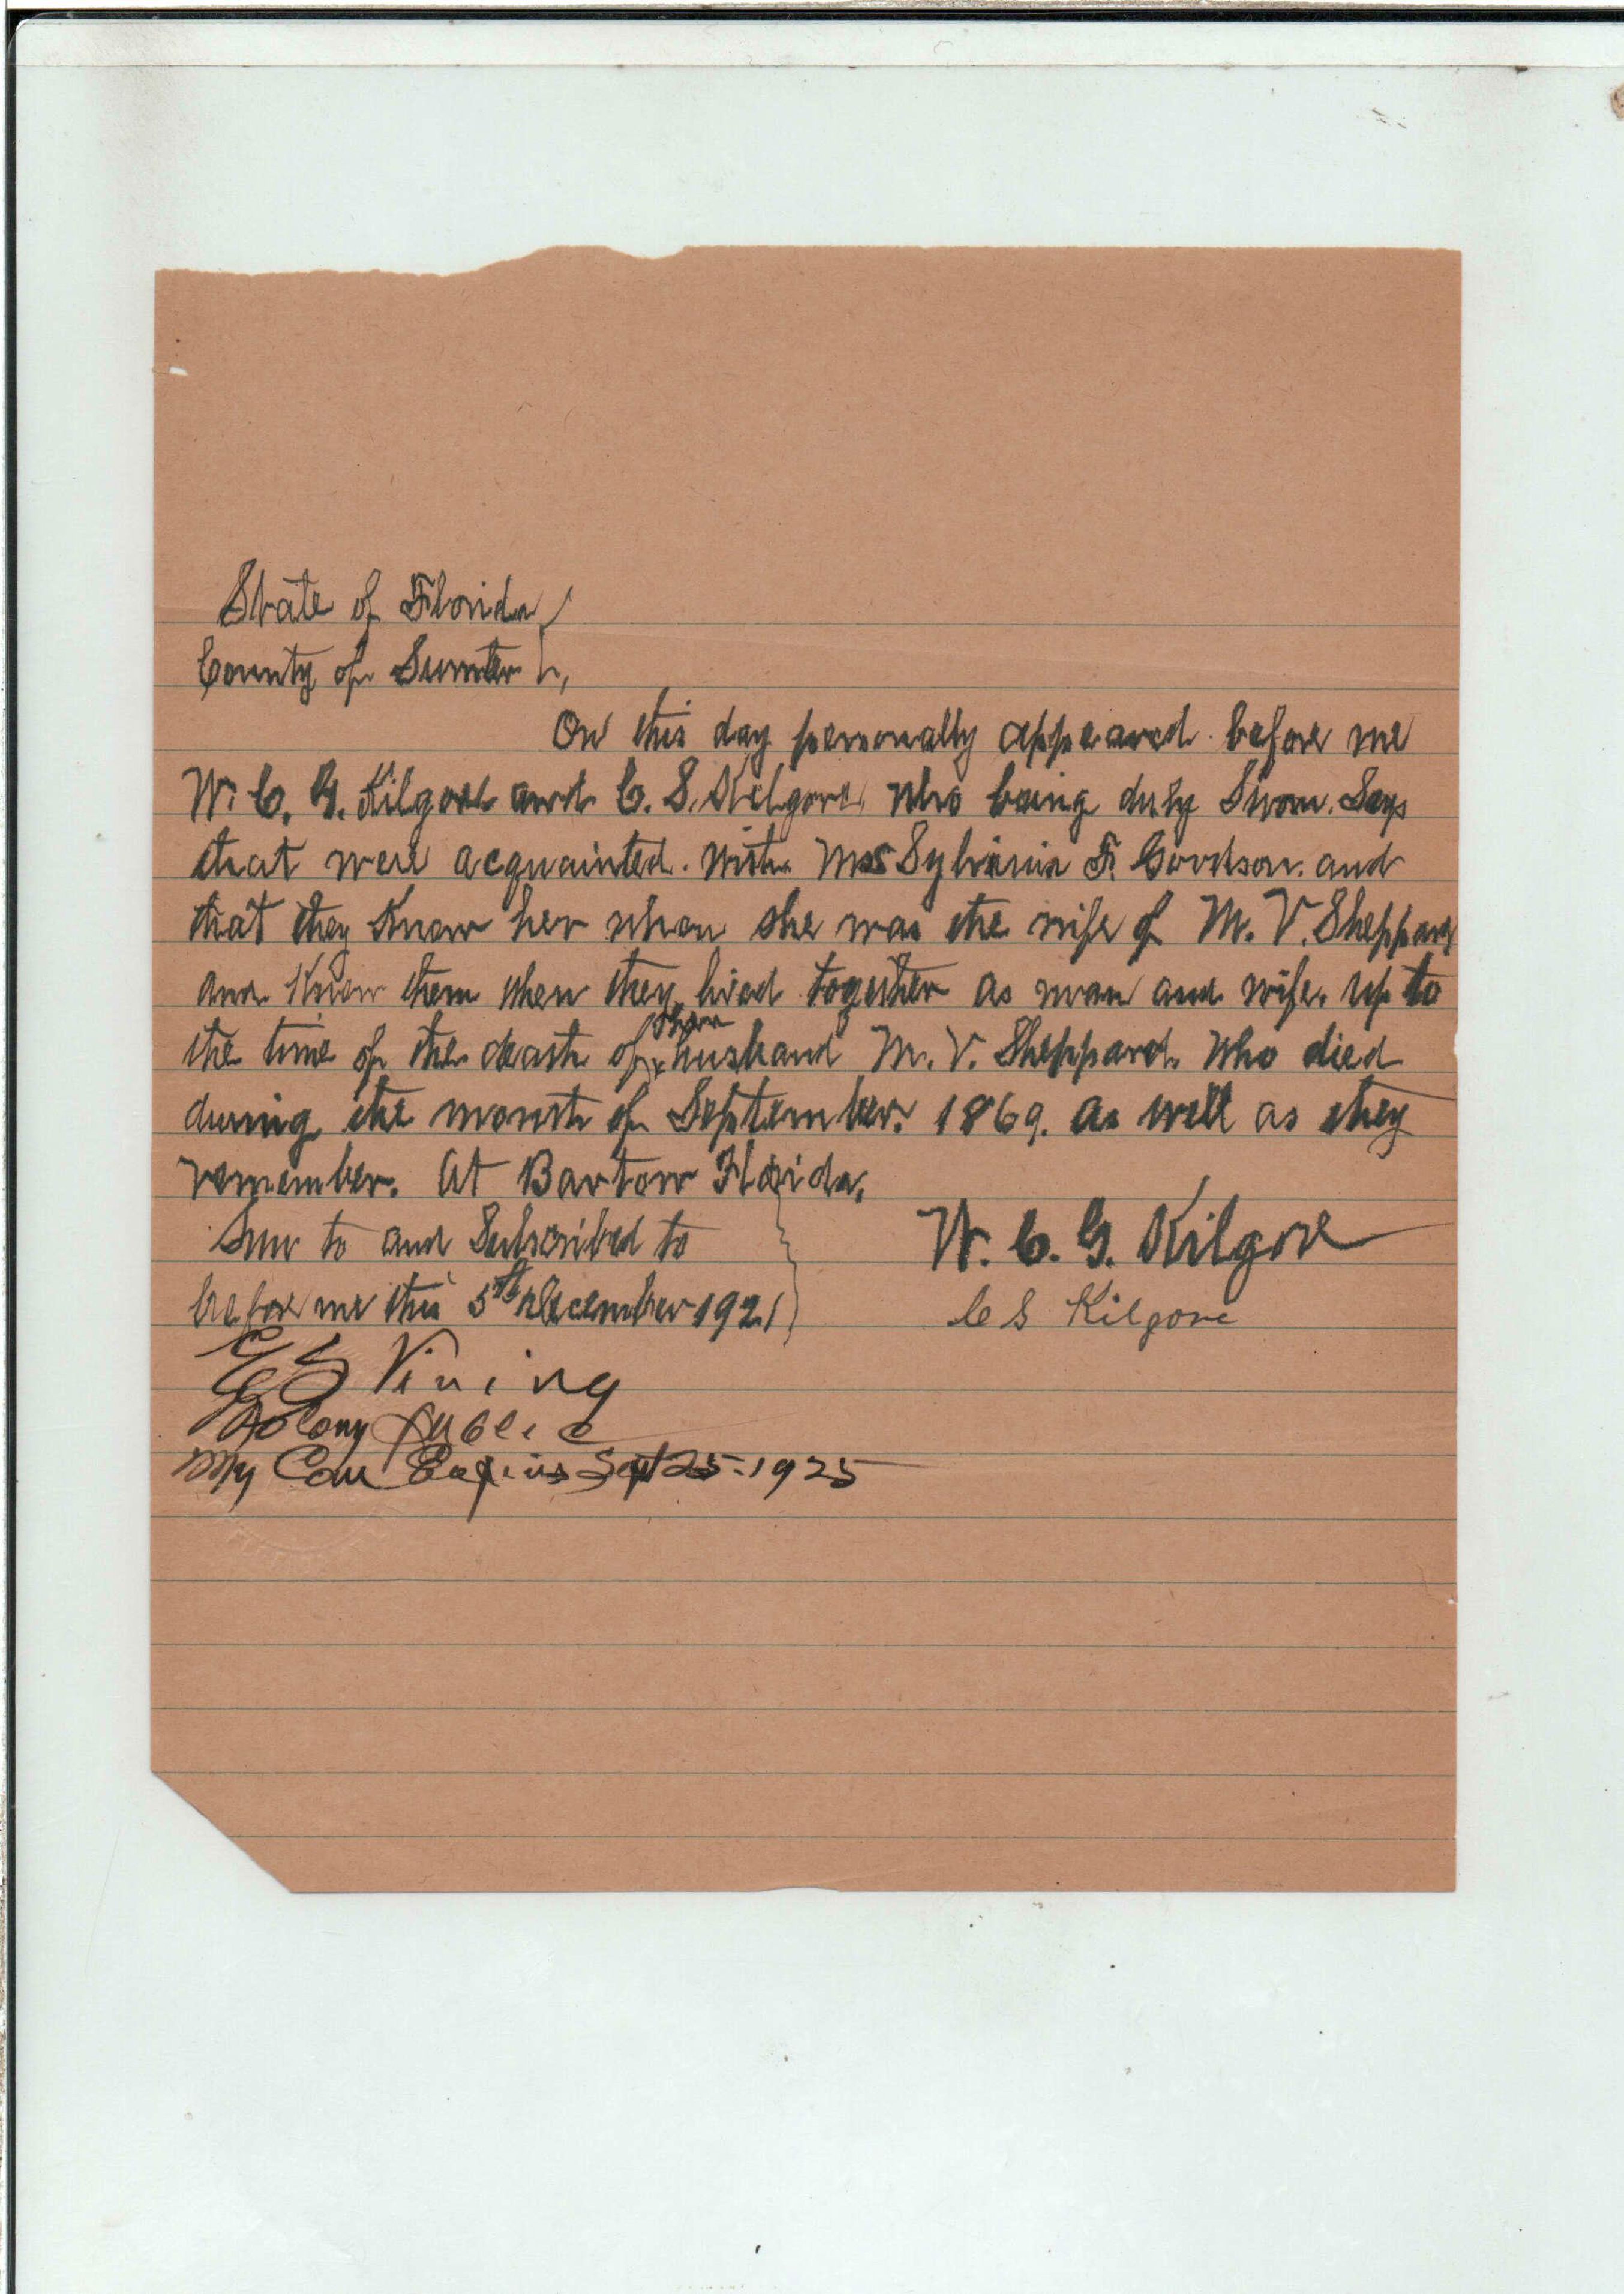 State of Florida
County of Sumter
On this day personally appeared before me
W. C. G. Kilgore and C. S. Kilgore, who being duly Sworn. Says
that were acquainted. with Mrs F. and
that they Know her when she was the wife of M. V. Sheppard
and Know them when they lived together as man and wife. up to
the time of the death of her husband M. V. Sheppard. Who died
during the month of September. 1869. as well as they
remember. At Bartow Florida.
to and Subscribed to
before me this 5th December 1921
W. C. G. Kilgore
C S Kilgore
Vining
Notary Public
My Com Expires Sept 25-1925